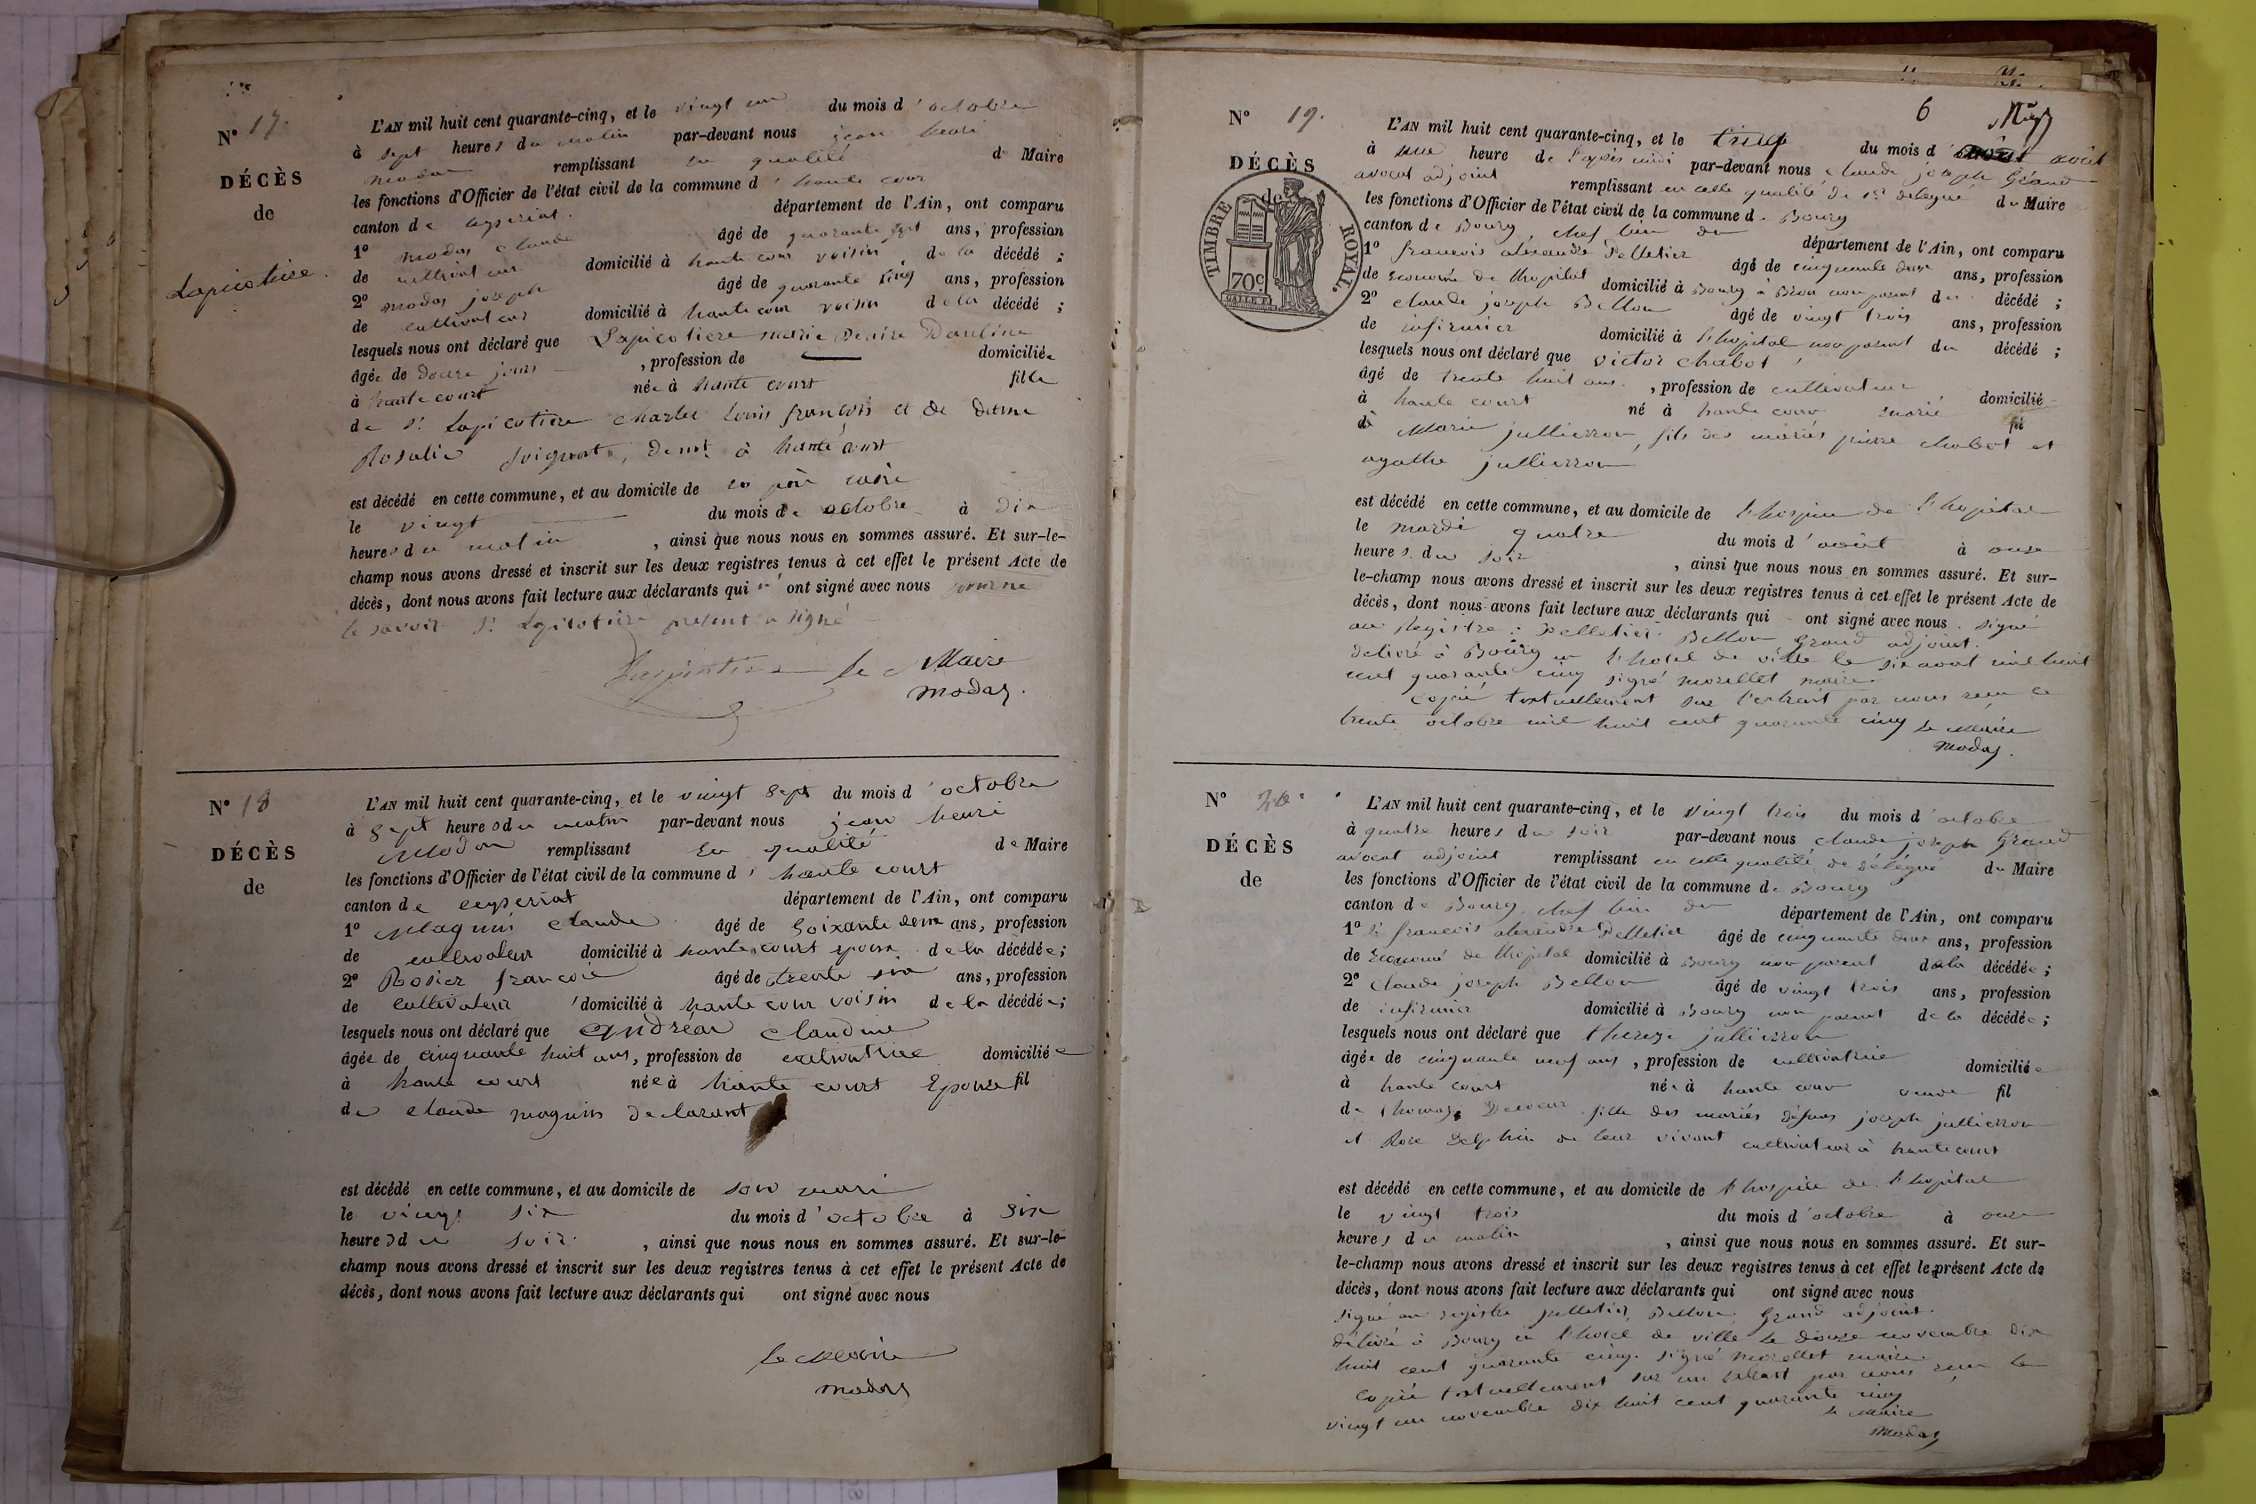 N° 17.
DÉCÈS
de
Lapicotiere.
L'AN mil huit cent quarante-cinq, et le vingt un du mois d'octobre
à sept heures du matin par-devant nous jean henri
modas remplissant en qualité de Maire
les fonctions d'Officier de l'état civil de la commune d' haute cour
canton de ceyseriat. département de l'Ain, ont comparu
1° modas claude âgé de quarante sept ans, profession
de cultivateur domicilié à haute cour voisin de la décédé ;
2° modas joseph âgé de quarante cinq ans, profession
de cultivateur domicilié à haute cour voisin de la décédé ;
lesquels nous ont déclaré que Lapicotiere marie Pauline
âgée de douze jours , profession de domiciliée
à haute court née à haute court fille
de Sr Lapicotiere charles louis françois et de dame
Rosalie demt à haute court
est décédé en cette commune, et au domicile de son père
le vingt du mois de octobre à dix
heures du matin , ainsi que nous nous en sommes assuré. Et sur-le-
champ nous avons dressé et inscrit sur les deux registres tenus à cet effet le présent Acte de
décès, dont nous avons fait lecture aux déclarants qui n'ont signé avec nous pour ne
le savoir Sr Lapicotiere present a signé
Lapicotiere le Maire
modas.
N° 18
DÉCÈS
de
L'AN mil huit cent quarante-cinq, et le vingt sept du mois d'octobre
à sept heures du matin par-devant nous jean henri
Modas remplissant en qualité de Maire
les fonctions d'Officier de l'état civil de la commune d' haute court
canton de ceyseriat département de l'Ain, ont comparu
1° Magnin claude âgé de soixante deux ans, profession
de cultivateur domicilié à haute court epoux de la décédée ;
2° Rosier françois âgé de trente six ans, profession
de cultivateur domicilié à haute cour voisin de la décédée ;
lesquels nous ont déclaré que andréas claudine
âgée de cinquante huit ans, profession de cultivatrice domiciliée
à haute court née à haute court Epouse fil
de claude magnin declarant
est décédé en cette commune, et au domicile de son mari
le vingt six du mois d'octobre à six
heures du soir , ainsi que nous nous en sommes assuré. Et sur-le-
champ nous avons dressé et inscrit sur les deux registres tenus à cet effet le présent Acte de
décès, dont nous avons fait lecture aux déclarants qui ont signé avec nous
le Maire
modas
6
N° 19.
DÉCÈS
de
TIMBRE ROYAL.
70c
L'AN mil huit cent quarante-cinq, et le cinq du mois d' août
à une heure de l'après midi par-devant nous claude joseph Grand
avocat adjoint remplissant en cette qualité de Sr delegué du Maire
les fonctions d'Officier de l'état civil de la commune de Bourg
canton de Bourg, chef lieu du département de l'Ain, ont comparu
1° françois alexandre Pelletier âgé de cinquante deux ans, profession
de econome de l'hopital domicilié à Bourg à Brou non parent du décédé ;
2° claude joseph Bellon âgé de vingt trois ans, profession
de infirmier domicilié à l'hopital non parent du décédé ;
lesquels nous ont déclaré que victor chabot
âgé de trente huit ans , profession de cultivateur domicilié
à haute court né à haute cour marié fil
de Marie jullierron, fils des mariés pierre chabot et
agathe jullierron
est décédé en cette commune, et au domicile de l'hospice de l'hopital
le mardi quatre du mois d'août à onze
heures du soir , ainsi que nous nous en sommes assuré. Et sur-
le-champ nous avons dressé et inscrit sur les deux registres tenus à cet effet le présent Acte de
décès, dont nous avons fait lecture aux déclarants qui ont signé avec nous. signé
au Registre : Pelletier Bellon Grand adjoint.
délivré à Bourg en l'hotel de ville le six aout mil huit
cent quarante cinq signé morellet maire
copié textuellement sur l'extrait par nous reçu le
trente octobre mil huit cent quarante cinq le Maire
modas.
N° 20
DÉCÈS
de
L'AN mil huit cent quarante-cinq, et le vingt trois du mois d'octobre
à quatre heures du soir par-devant nous claude joseph Grand
avocat adjoint remplissant en cette qualité de délégué du Maire
les fonctions d'Officier de l'état civil de la commune de Bourg
canton de Bourg, chef lieu du département de l'Ain, ont comparu
1° Sr françois alexandre Pelletier âgé de cinquante deux ans, profession
de Econome de l'hopital domicilié à Bourg non parent de la décédée ;
2° claude joseph Bellon âgé de vingt trois ans, profession
de infirmier domicilié à Bourg non parent de la décédée ;
lesquels nous ont déclaré que therese jullierron
âgée de cinquante neuf ans , profession de cultivatrice domiciliée
à haute court née à haute cour veuve fil
de thomas fille des mariés défunts joseph jullierron
et Rose Delphin de leur vivant cultivateurs à haute court
est décédé en cette commune, et au domicile de l'hospice de l'hopital
le vingt trois du mois d'octobre à onze
heures du matin , ainsi que nous nous en sommes assuré. Et sur-
le-champ nous avons dressé et inscrit sur les deux registres tenus à cet effet le présent Acte de
décès, dont nous avons fait lecture aux déclarants qui ont signé avec nous
signé au registre pelletier, Bellon, Grand adjoint.
délivré à Bourg en l'hotel de ville le douze novembre dix
huit cent quarante cinq. signé morellet maire
copié textuellement sur un extrait par nous reçu le
vingt un novembre dix huit cent quarante cinq
le Maire
modas